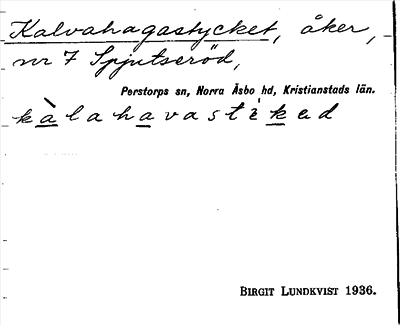 Kalvahagastycket, åker,
nr 7 Spjutseröd,
Perstorps sn, Norra Åsbo hd, Kristianstads län.
kàlahavastìked
BIRGIT LUNDKVIST 1936.